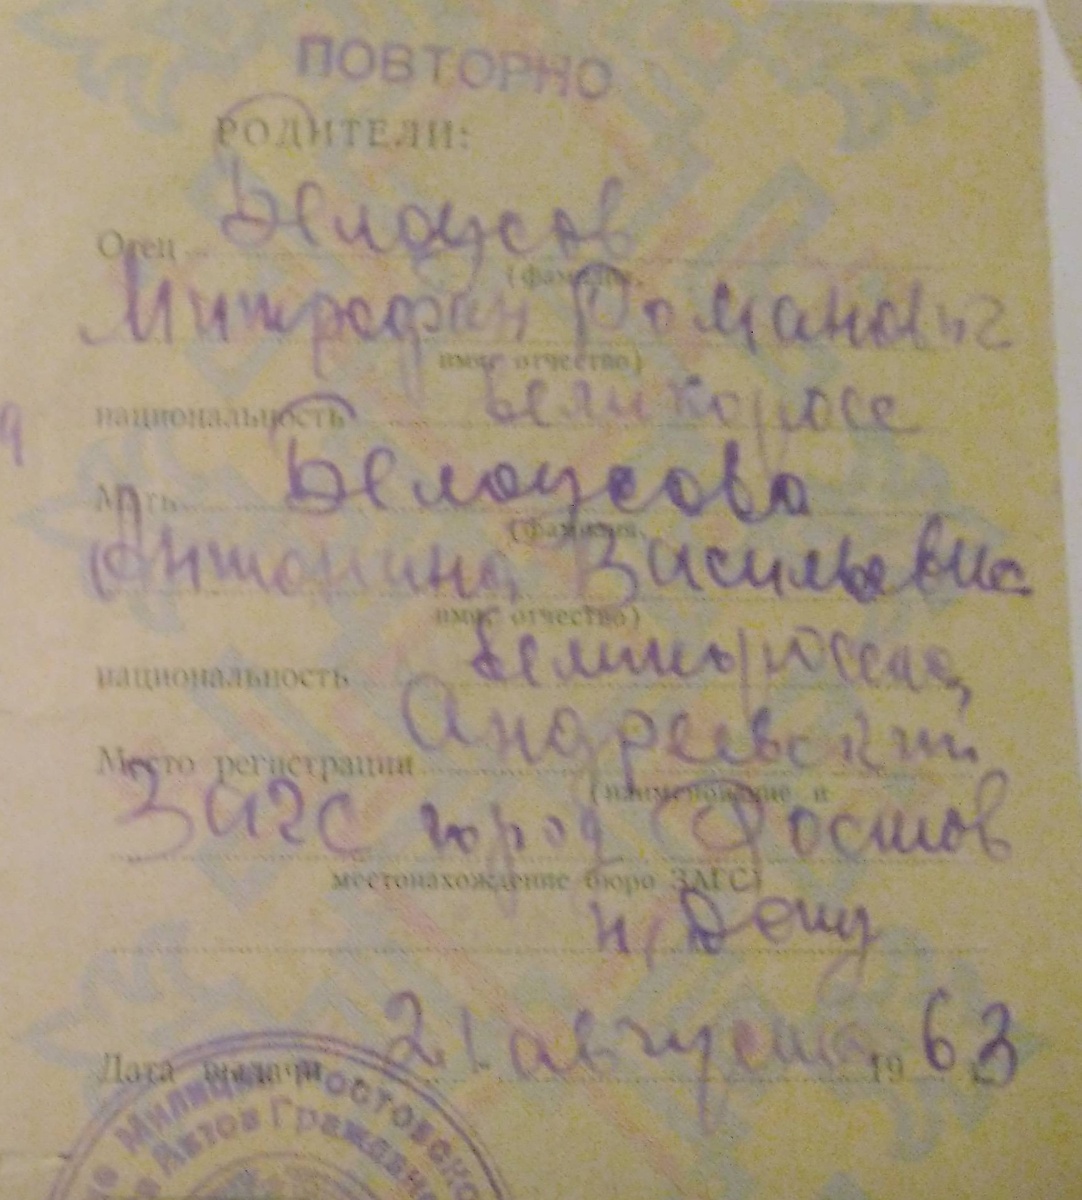 ПОВТОРНО
РОДИТЕЛИ:
Отец Белоусов
(фамилия,
Митрофан Романович
имя, отчество)
национальность великоросс
Мать Белоусова
(фамилия,
Антонина Васильевна
имя, отчество)
национальность
Место регистрации Андреевский
(наименование и
ЗАГС город Ростов
местонахождение бюро ЗАГС)
н/Дону
Дата выдачи 21 августа 1963
Милиции Ростовско
Актов Граждан